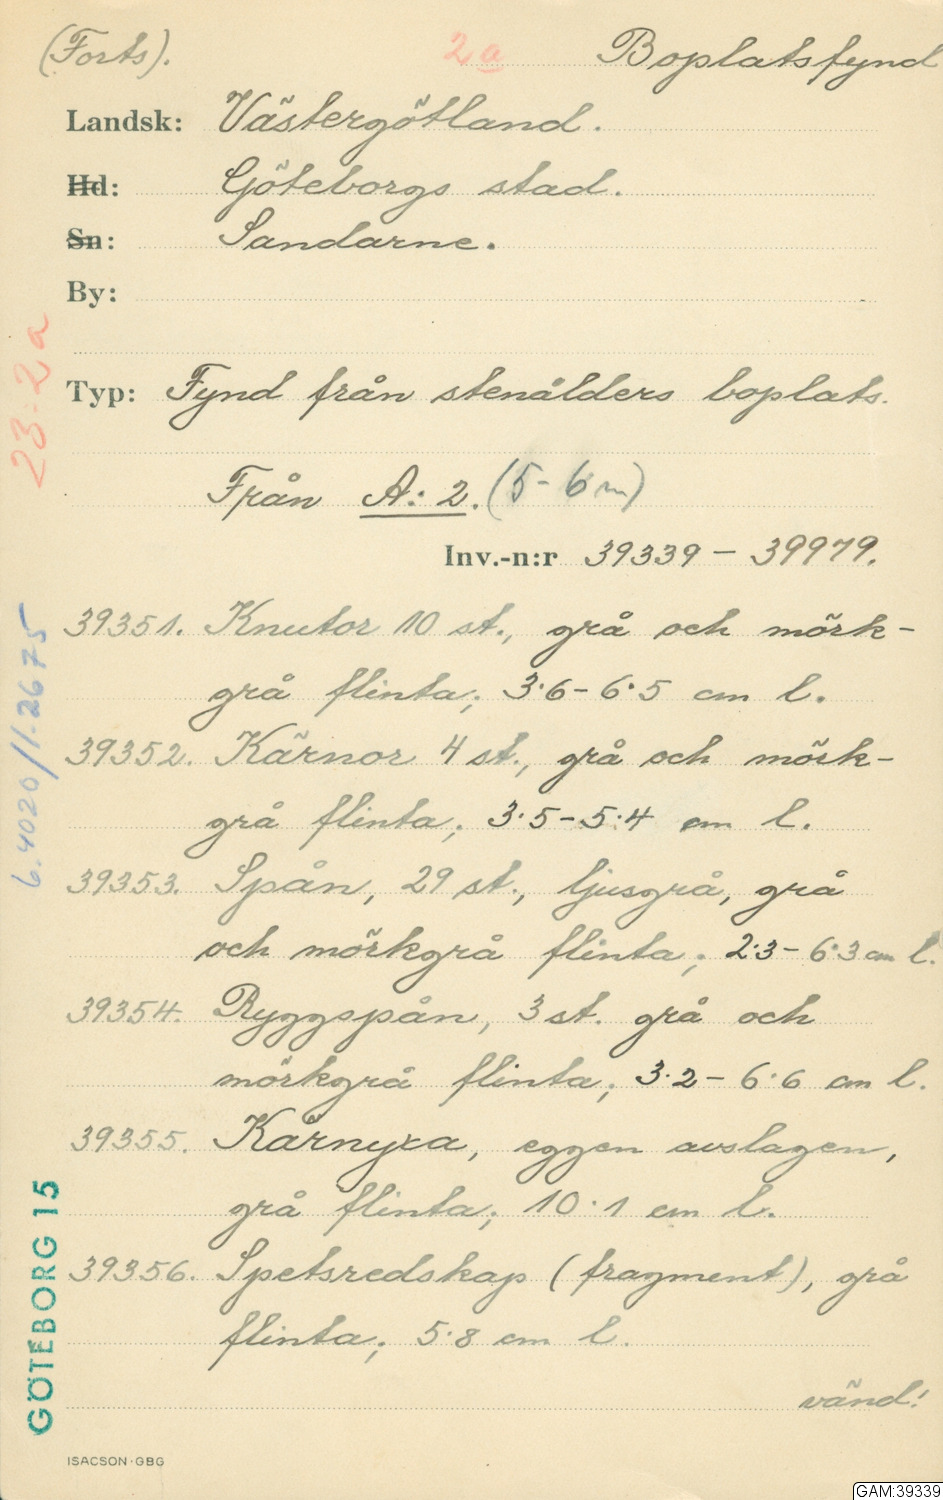 (Forts). 2a Boplatsfynd
Landsk: Västergötland.
Hd: Göteborgs stad.
Sn: Sandarne.
By:
Typ: Fynd från stenålders boplats.
Från A: 2. (5-6 m)
Inv.-n:r 39339 - 39979.
39351. Knutor 10 st., grå och mörk-
grå flinta; 3.6-6.5 cm l.
39352. Kärnor 4 st., grå och mörk-
grå flinta; 3.5-5.4 cm l.
39353. Spån, 29 st., ljusgrå, grå
och mörkgrå flinta; 2.3-6.3 cm l.
39354. Ryggspån, 3 st. grå och
mörkgrå flinta; 3.2-6.6 cm l.
39355. Kärnyxa, eggen avslagen,
grå flinta; 10.1 cm l.
39356. Spetsredskap (fragment), grå
flinta; 5.8 cm l.
vänd!
ISACSON-GBG
23-2a
6.4020/1-2675
GÖTEBORG 15
GAM:39339